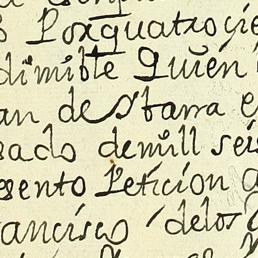 s Porquatrocie
dimible Quien
an de Ybarra e
sado demill seis
esento Peticion a
rancisco delos